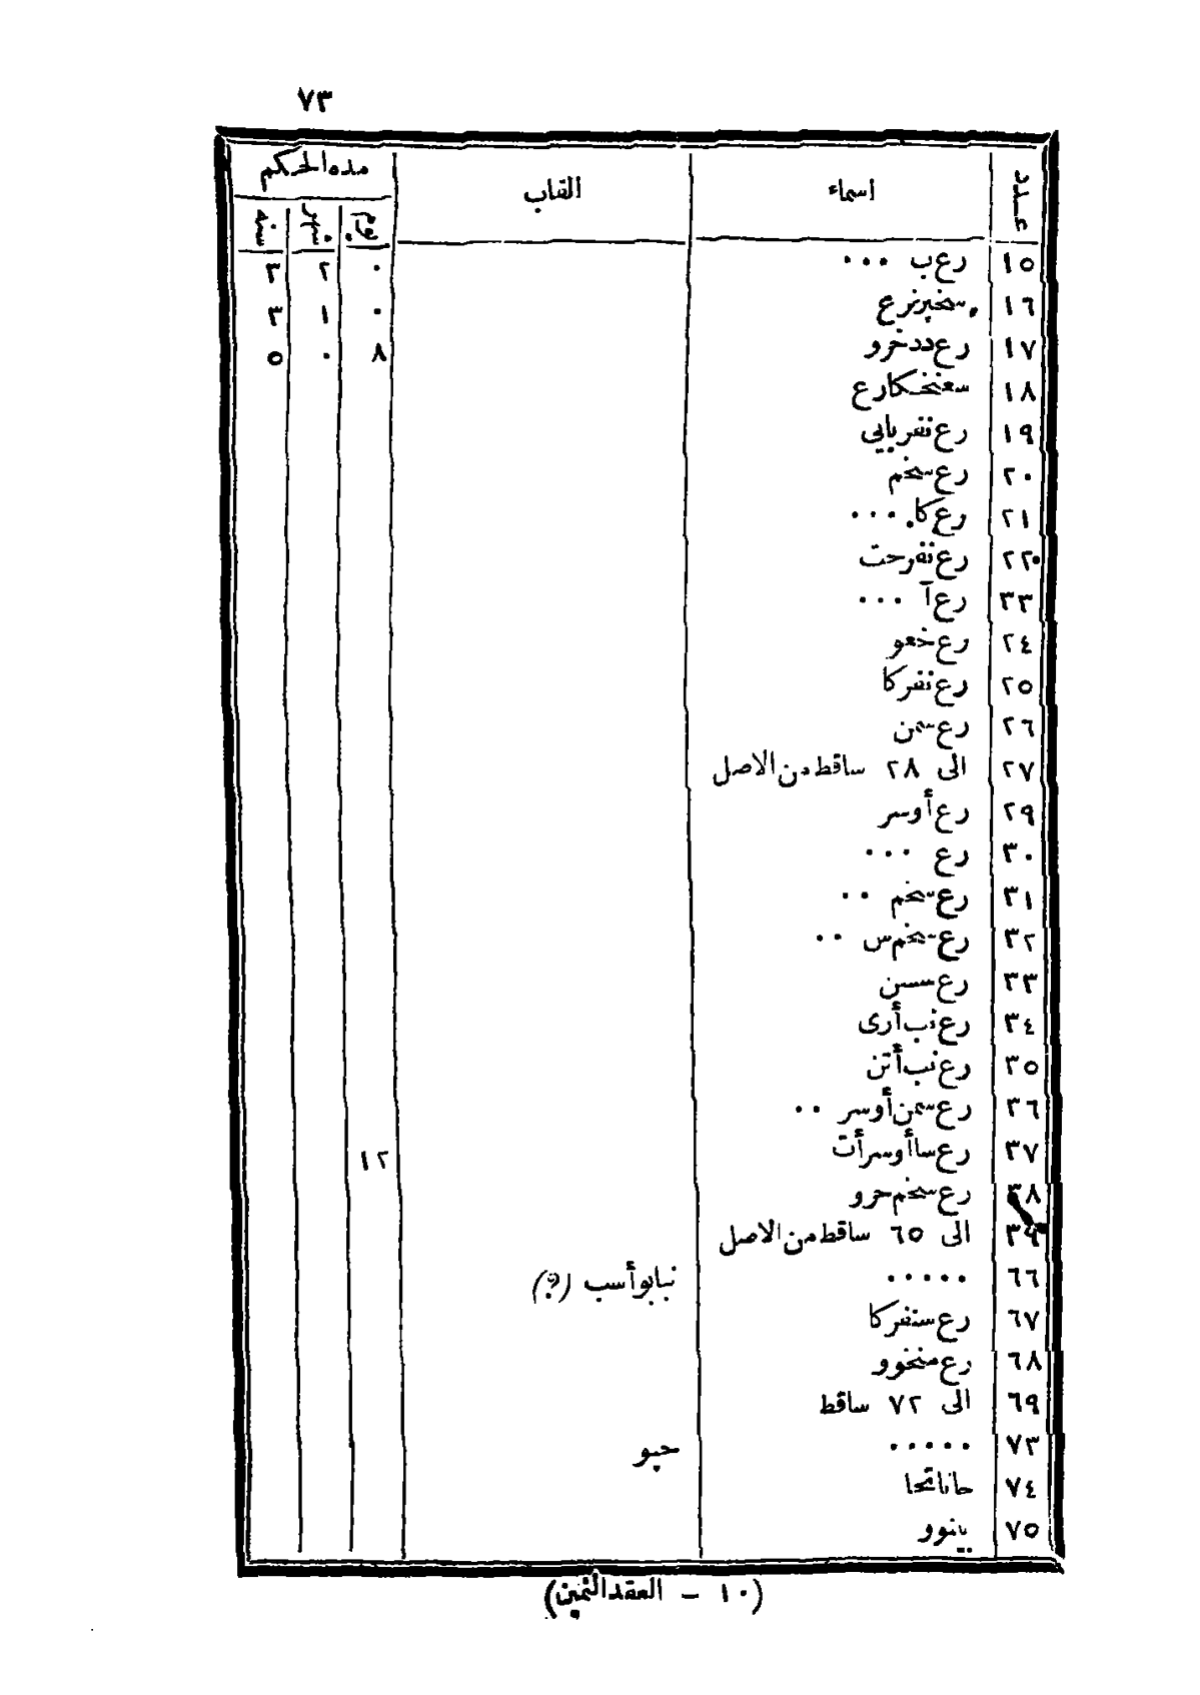 ٧٣
عدد اسماء القاب مده الحكم
يوم شهر سنه
١٥ رع ب ... ٠ ٢ ٣
١٦ سخبرنرع ٠ ١ ٣
١٧ رع ددخرو ٨ ٠ ٥
١٨ سعنخكارع
١٩ رع نفريابي
٢٠ رع سخم
٢١ رع كا ....
٢٢ رع نفرحت
٣٣ رع آ ...
٢٤ رع خعو
٢٥ رع نفركا
٢٦ رع سمن
٢٧ الى ٢٨ ساقط من الاصل
٢٩ رع أوسر
٣٠ رع ...
٣١ رع سخم ..
٣٢ رع سخم س ..
٣٣ رع سسن
٣٤ رع نب أرى
٣٥ رع نب أتن
٣٦ رع سمن أوسر ..
٣٧ رع سا أوسرأت ١٢
٣٨ رع سخم حرو
٣٩ الى ٦٥ ساقط من الاصل
٦٦ ..... نبابوأسب (؟)
٦٧ رع سنفركا
٦٨ رع منخوو
٦٩ الى ٧٢ ساقط
٧٣ ..... حبو
٧٤ حاناتحا
٧٥ يانوو
(١٠ - العقد الثمين)